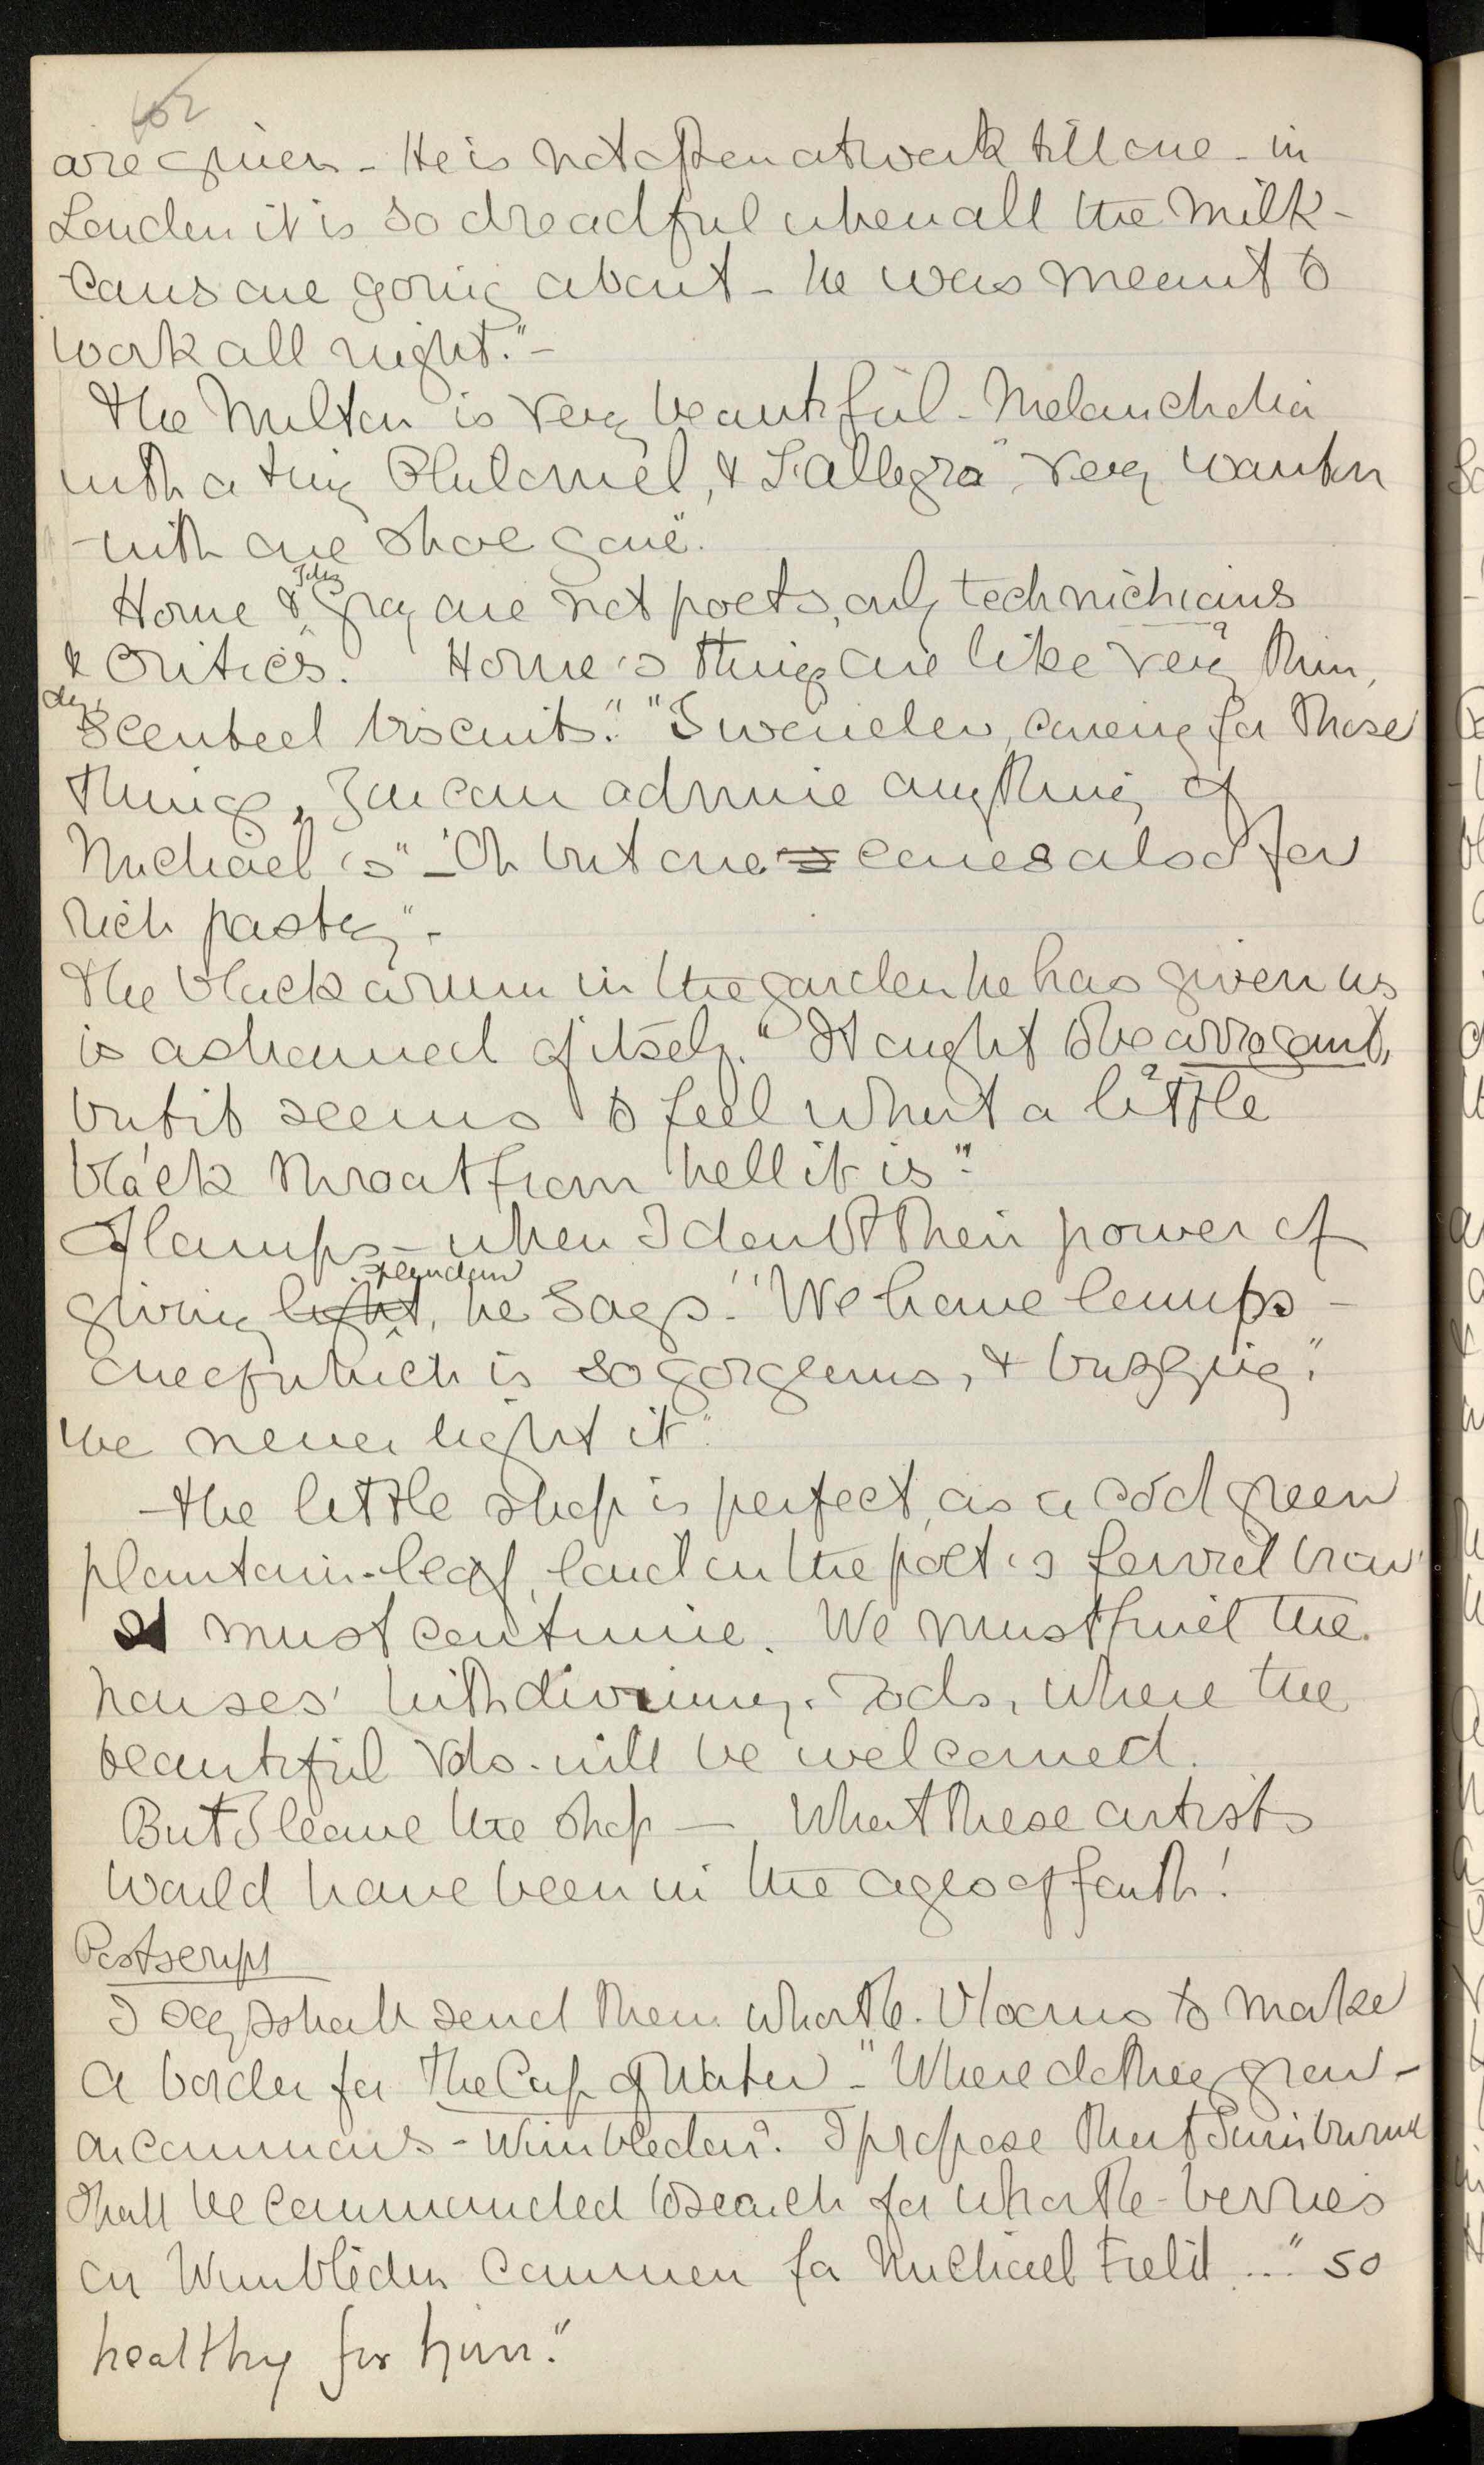 102
are given - He is not often at work till one - in
London it is so dreadful when all the milk-
cans are going about - he was meant to
work all night." -
The Milton is very beautiful - Melancholia
with a tiny Philomel, & L'allegro "very wanton
with one shoe gone".
Home & John Gray are not poets, only technichians
& critics." Horne's things are like very thin,
dry, scented biscuits." "I wonder, caring for those
things, you can admire anything of
Michael's" - "Oh but one cares also for
rich pastry" -
The black arum in the garden he has given us
is ashamed of itself. "It ought to be arrogant,
but it seems to feel what a little
black throat from hell it is".
Of lamps - when I doubt their power of
giving light, splendour he says - "We have lamps -
one of which is so gorgeous, & bugging,"
we never light it".
- The little shop is perfect, as a cool green
plantain-leaf, laid on the poet's fervid brow.
It must continue. We must find the
houses' with divining-rods, where the
beautiful vols. will be welcomed.
But I leave the shop — What these artists
would have been in the ages of faith!
Postscript
I say I shall send them whortle-blooms to make
a border for The Cup of Water - "Where do they grow -
on commons - Wimbledon? I propose that Swinburne
shall be commanded to search for whortle-berries
on Wimbledon Common for Michael Field ... " so
healthy for him."